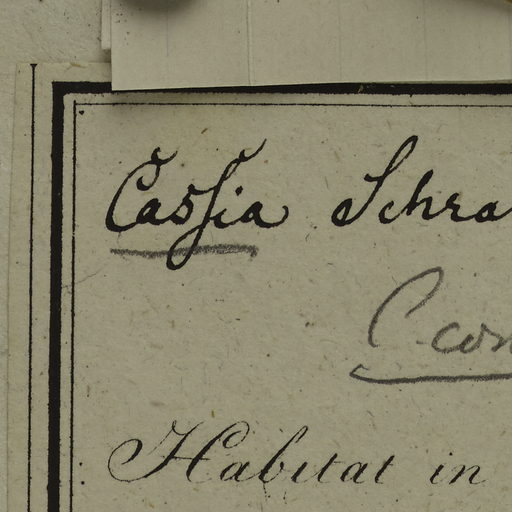 Cassia Schra
C. con
Habitat in